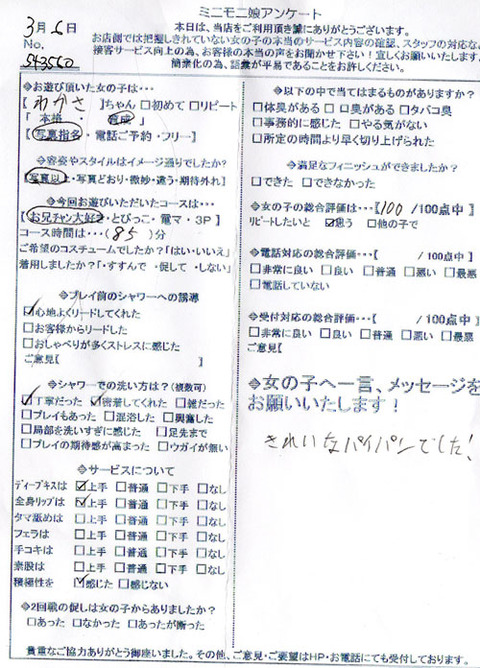 ミニモニ娘アンケート
3月6日
No.
543560
本日は、当店をご利用頂き誠にありがとうございます。
お店側では把握しきれていない女の子の本当のサービス内容の確認、スタッフの対応など
接客サービス向上の為、お客様の本音の声をお聞かせ下さい!宜しくお願いいたします。
簡素化の為、語彙が平易であることをお許しください。
◈お遊び頂いた女の子は・・・
【 わかさ 】ちゃん □初めて □リピート
「 本格 ・ 育成 」
【 写真指名・電話ご予約・フリー】
◈容姿やスタイルはイメージ通りでしたか?
【写真以上・写真どおり・微妙・違う・期待外れ】
◈今回お遊びいただいたコースは・・・
【お兄チャン大好き・とびっこ・電マ・3P】
コース時間は・・・( 85 )分
ご希望のコスチュームでしたか?「はい・いいえ」
着用しましたか?「・すすんで ・促して ・しない」
◈プレイ前のシャワーへの誘導
☑心地よくリードしてくれた
□お客様からリードした
□おしゃべりが多くストレスに感じた
ご意見【 】
◈シャワーでの洗い方は?(複数可)
☑丁寧だった ☑密着してくれた □雑だった
□プレイもあった □混浴した □興奮した
□局部を洗いすぎに感じた □足先まで
□プレイの期待感が高まった □ウガイが無い
◈サービスについて
ディープキスは ☑上手 □普通 □下手 □なし
全身リップは ☑上手 □普通 □下手 □なし
タマ舐めは □上手 □普通 □下手 □なし
フェラは □上手 □普通 □下手 □なし
手コキは □上手 □普通 □下手 □なし
素股は □上手 □普通 □下手 □なし
積極性を ☑感じた □感じない
◈2回戦の促しは女の子からありましたか?
□あった □なかった □あったが断った
◈以下の中で当てはまるものがありますか?
□体臭がある □口臭がある □タバコ臭
□事務的に感じた □やる気がない
□所定の時間より早く切り上げられた
◈満足なフィニッシュができましたか?
□できた □できなかった
◈女の子の総合評価は・・・【 100 /100点中】
リピートしたいと ☑思う □他の子で
◈電話対応の総合評価・・・【 /100点中】
□非常に良い □良い □普通 □悪い □最悪
□電話していない
◈受付対応の総合評価・・・【 /100点中】
□非常に良い □良い □普通 □悪い □最悪
ご意見【
◈女の子へ一言、メッセージを
お願いいたします!
きれいなパイパンでした!
貴重なご協力ありがとう御座いました。その他、ご意見・ご要望はHP・お電話にても受付しております。